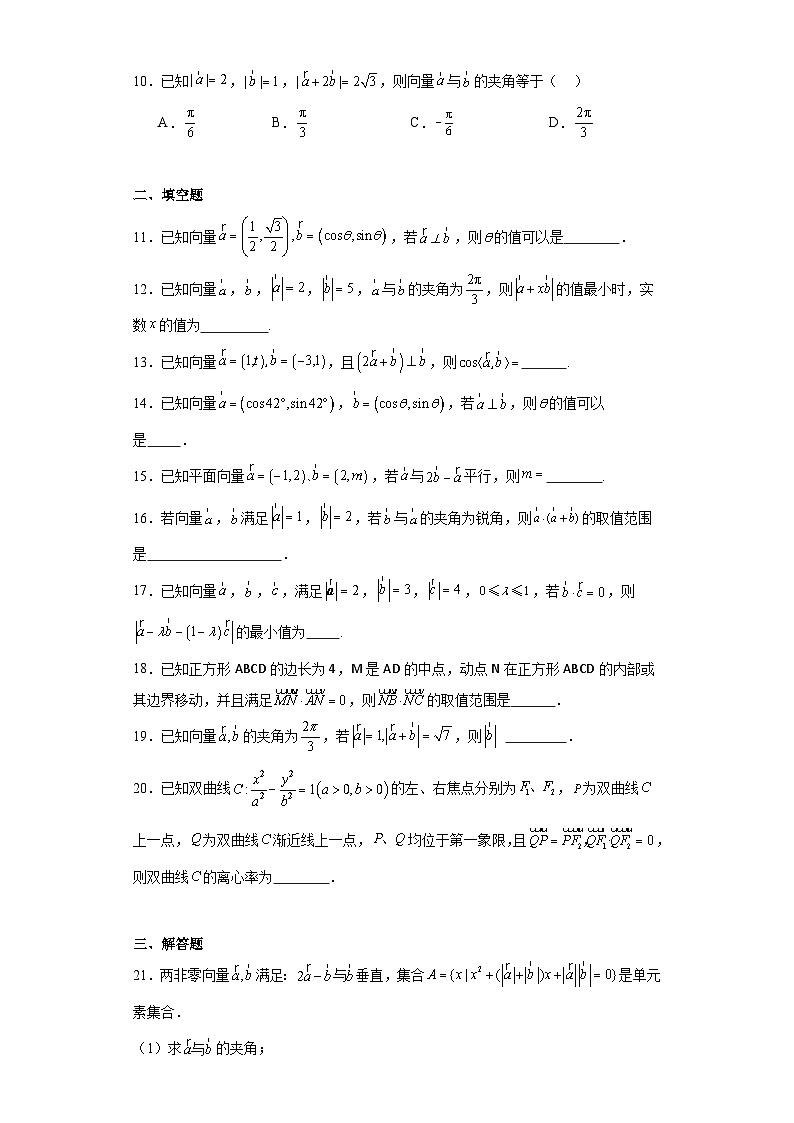 10.已知|a|=2,|b|=1,|a+2b|=2√3,则向量a与b的夹角等于( )
A.π/6 B.π/3 C.-π/6 D.2π/3
二、填空题
11.已知向量a=(1/2,√3/2),b=(cosθ,sinθ),若a⊥b,则θ的值可以是________.
12.已知向量a,b,|a|=2,|b|=5,a与b的夹角为2π/3,则|a+xb|的值最小时,实
数x的值为__________.
13.已知向量a=(1,t),b=(-3,1),且(2a+b)⊥b,则cos⟨a,b⟩=_______.
14.已知向量a=(cos42°,sin42°),b=(cosθ,sinθ),若a⊥b,则θ的值可以
是_____.
15.已知平面向量a=(-1,2),b=(2,m),若a与2b-a平行,则m=________.
16.若向量a,b满足|a|=1,|b|=2,若b与a的夹角为锐角,则a·(a+b)的取值范围
是____________________.
17.已知向量a,b,c,满足|a|=2,|b|=3,|c|=4,0≤λ≤1,若b·c=0,则
|a-λb-(1-λ)c|的最小值为_____.
18.已知正方形ABCD的边长为4,M是AD的中点,动点N在正方形ABCD的内部或
其边界移动,并且满足MN·AN=0,则NB·NC的取值范围是_______.
19.已知向量a,b的夹角为2π/3,若|a|=1,|a+b|=√7,则|b| _________.
20.已知双曲线C:x²/a²-y²/b²=1(a>0,b>0)的左、右焦点分别为F₁、F₂,P为双曲线C
上一点,Q为双曲线C渐近线上一点,P、Q均位于第一象限,且QP=PF₂,QF₁·QF₂=0,
则双曲线C的离心率为________.
三、解答题
21.两非零向量a,b满足:2a-b与b垂直,集合A={x|x²+(|a|+|b|)x+|a||b|=0}是单元
素集合.
(1)求a与b的夹角;